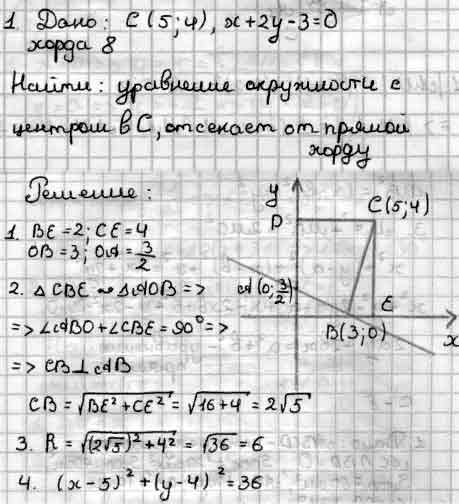 1. Дано: C(5;4), x+2y-3=0
хорда 8
Найти: уравнение окружности с
центром в C, отсекает от прямой
хорду
Решение:
1. BE=2; CE=4
OB=3; OA=3/2
2. △CBE ∾ △AOB =>
=> ∠ABO+∠CBE=90° =>
=> CB⊥AB
CB=√(BE²+CE²)=√(16+4)=2√5
3. R=√((2√5)²+4²)=√36=6
4. (x-5)²+(y-4)²=36
y
D
C(5;4)
A(0;3/2)
E
B(3;0)
x